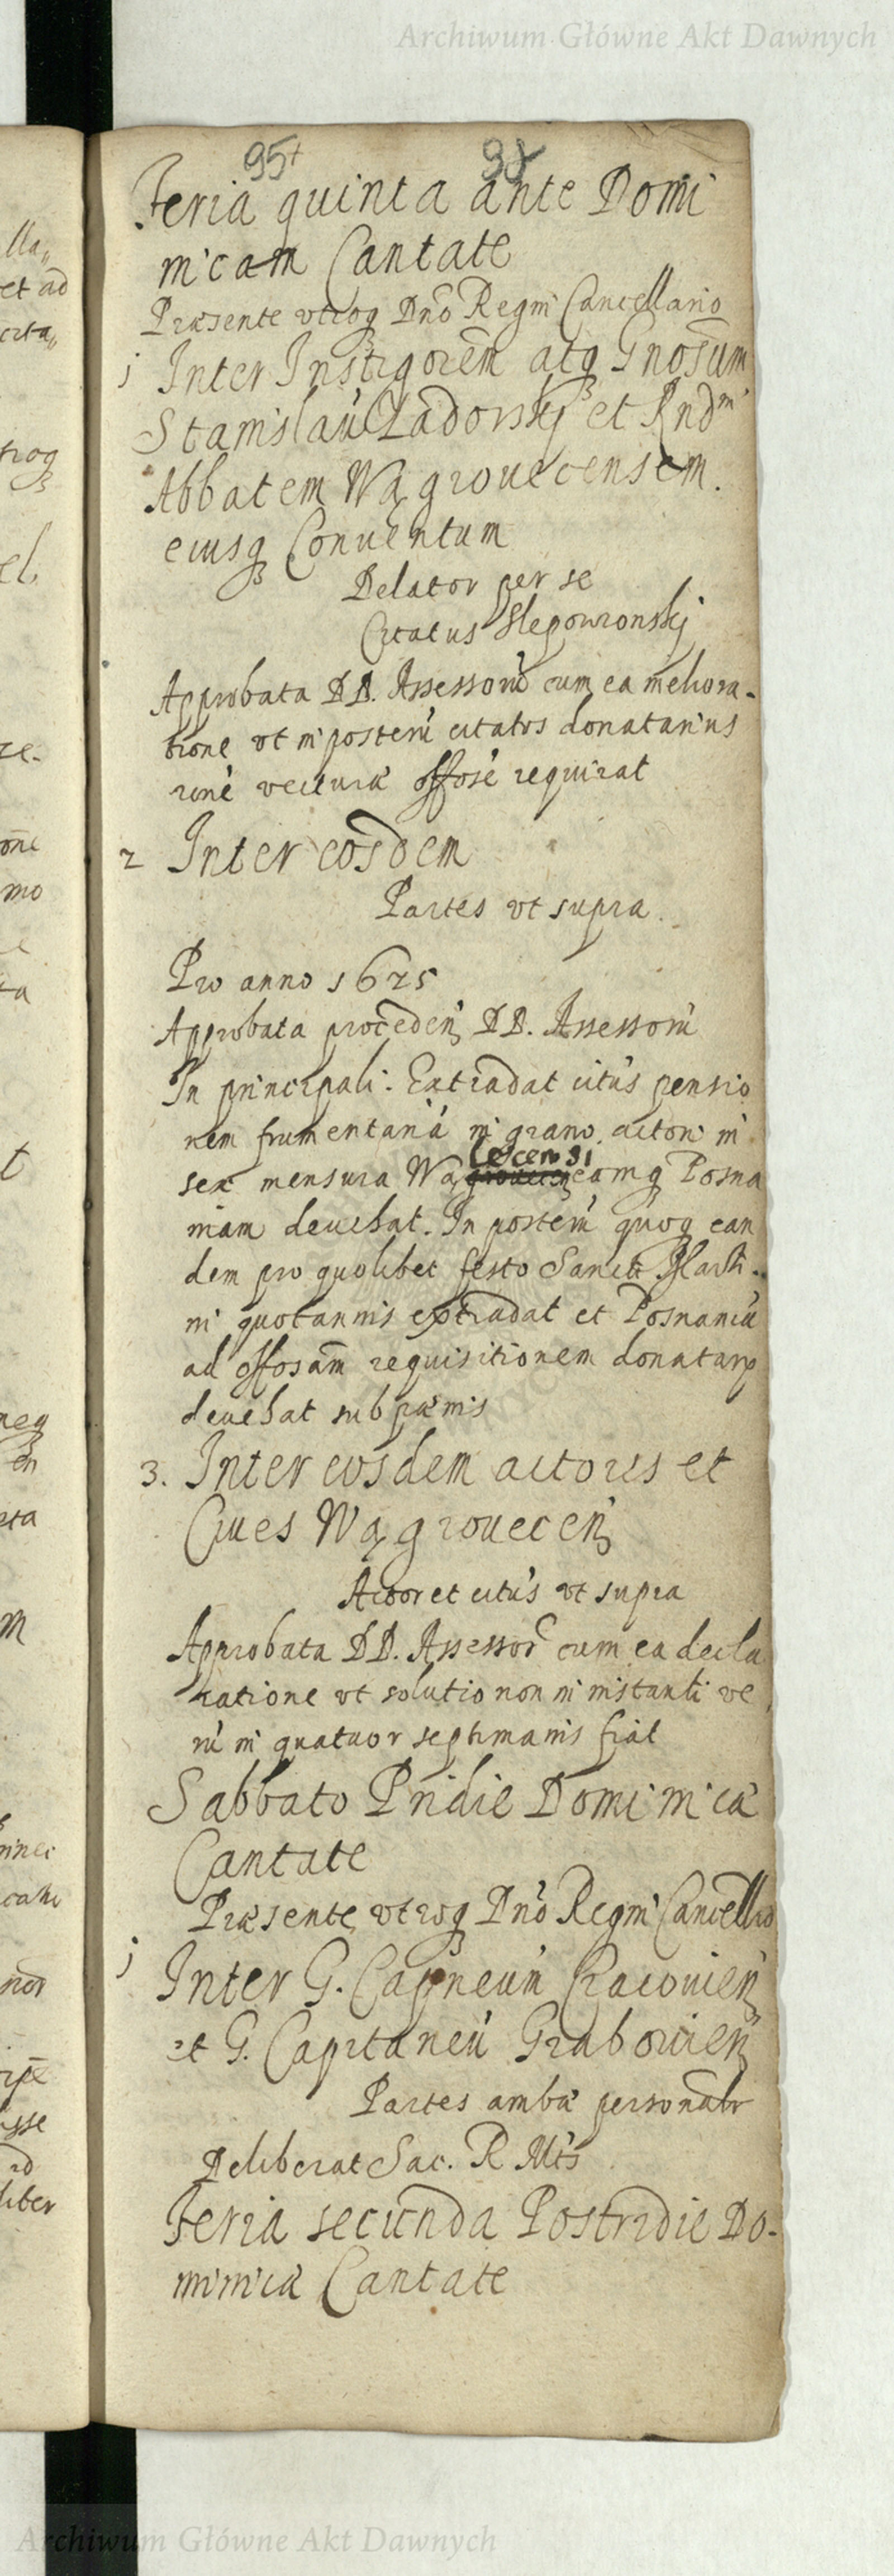 Archiwum Główne Akt Dawnych
95 98
Feria quinta ante Domi
nicam Cantate
Præsente utroq Dno Regni Cancellario
1 Inter Instigorem atq Gnosum
Stanislau Zadorskj et Rndm
Abbatem Wągrouecensem.
eiusq Conuentum
Delator per se
Citatus Slepowronskj
Approbata DD. Assessorú cum ea meliora-
tione ut in posterú citatos donatarius
rone vecturæ offose requirat
2 Inter eosdem
Partes ut supra.
Pro anno 1625
Approbata proceden DD. Assessorú
In principali: Extradat citús pensio
nem frumentariá in grano actori in
Lecensi
sex mensura Wągrouecen eamq Posna
niam deuehat. In posterú quoq ean
dem pro quolibet festo Sancti Marti-
ni quotannis extradat et Posnaniá
ad offosam requisitionem donatarij
deuehat sub pænis
3. Inter eosdem actores et
Ciues Wągrouecen
Actor et citús ut supra
Approbata DD. Assessor cum ea decla
ratione ut solutio non in instanti ve
rú in quatuor septimanis fiat
Sabbato Pridie Dominicæ
Cantate
Præsente utroq Dno Regni Cancellrio
1 Inter G. Capneun Cracouien
et G. Capitaneú Grabouien
Partes ambæ personalr
Deliberat Sac. R Mtis
Feria secunda Postridie Do-
minicæ Cantate
lla,,
et ad
troq
el.
re.
one
mo
ta
t
neq
en
m
nor
sse
ad
liber
Archiwum Główne Akt Dawnych